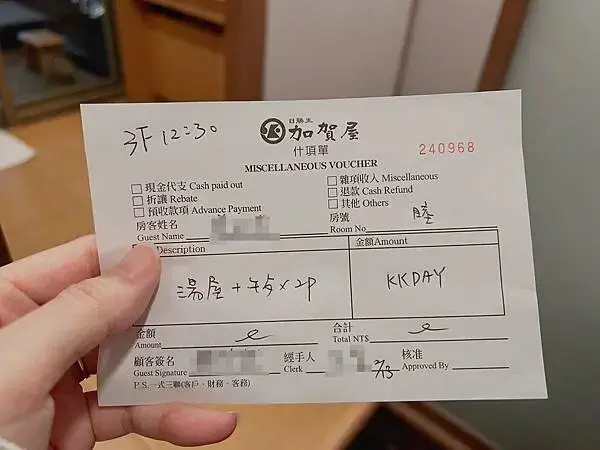 3F 12:30
日勝生
加賀屋
什項單
240968
MISCELLANEOUS VOUCHER
現金代支 Cash paid out
雜項收人 Miscellaneous
折讓 Rebate
退款 Cash Refund
預收款項 Advance Payment
其他 Others
房客姓名
Guest Name
房號
Room No
睦
Description
金額Amount
湯屋 + 午餐 x 2P
KKDAY
金額
Amount
合計
Total NT$
顧客簽名
Guest Signature
經手人
Clerk
2/13
核准
Approved By
P.S.一式三聯(客戶、財務、客務)